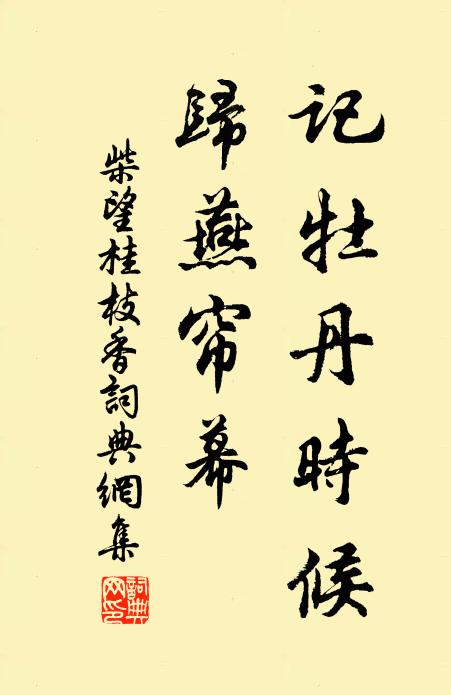 記牡丹時候
歸燕帘幕
柴望桂枝香詞典網集
詞典網印